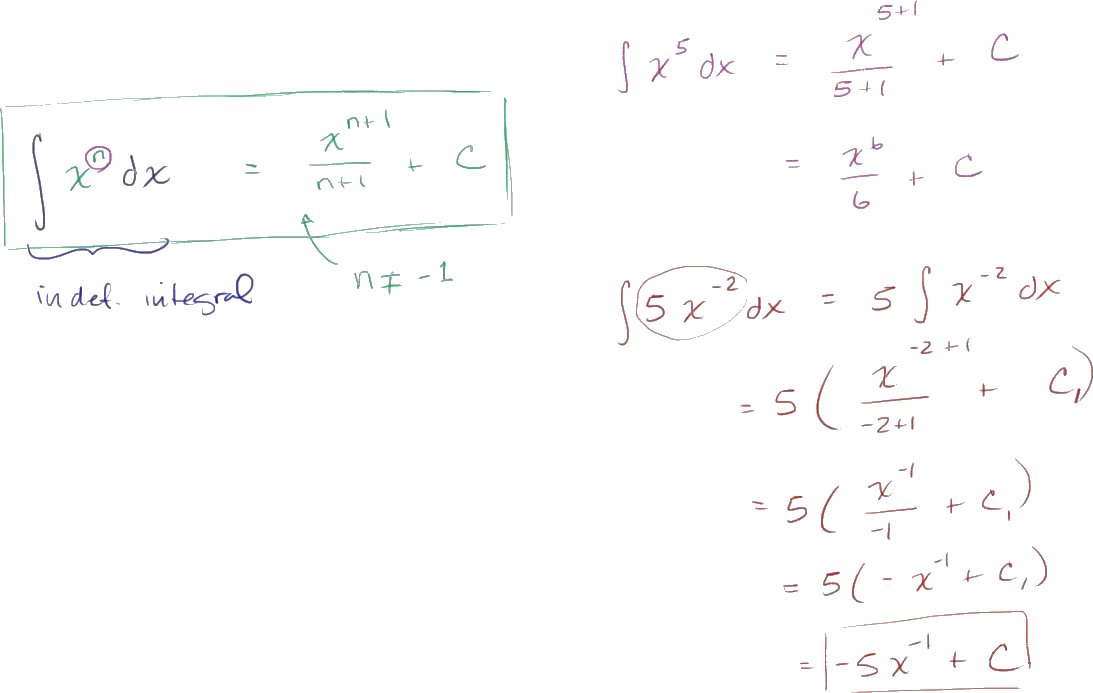 ∫ xⁿ dx = xⁿ⁺¹/(n+1) + C
n ≠ -1
indef. integral
∫ x⁵ dx = x⁵⁺¹/(5+1) + C
= x⁶/6 + C
∫ 5x⁻² dx = 5 ∫ x⁻² dx
= 5 ( x⁻²⁺¹/(-2+1) + C₁)
= 5 ( x⁻¹/-1 + C₁)
= 5 (- x⁻¹ + C₁)
= -5x⁻¹ + C